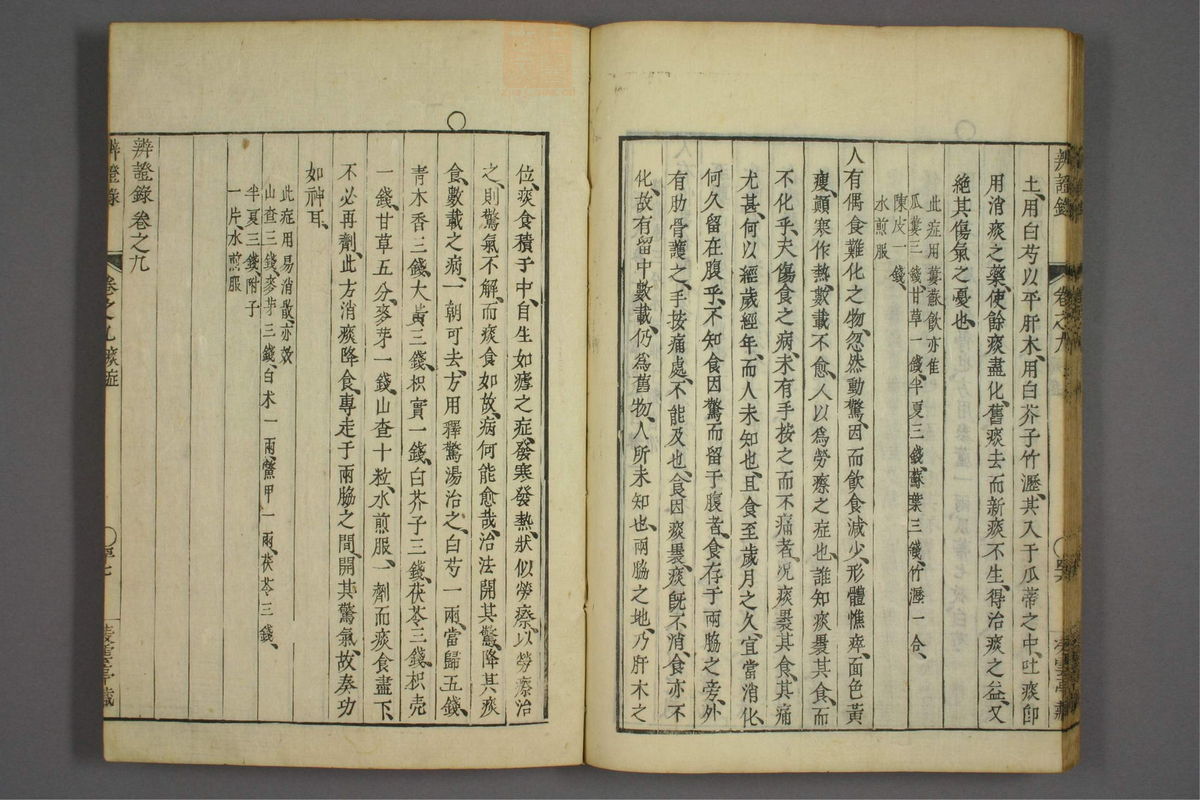 辨證錄 卷之九
土、用白芍以平肝木、用白芥子竹瀝、其入于瓜蒂之中、吐痰卽
用消痰之藥、使餘痰盡化、舊痰去而新痰不生、得治痰之益、又
絶其傷氣之憂也、
此症用蔞蘇飮亦佳
瓜蔞三錢、甘草一錢、半夏三錢、蘇葉三錢、竹瀝一合、
陳皮一錢、
水煎服
人有偶食難化之物、忽然動驚、因而飮食減少、形體憔瘁、面色黃
瘦、顚寒作熱、數載不愈、人以爲勞瘵之症也、誰知痰裹其食、而
不化乎、夫傷食之病、未有手按之而不痛者、况痰裹其食、其痛
尤甚、何以經歲經年、而人未知也、且食至歲月之久、宜當消化、
何久留在腹乎、不知食因驚而留于腹者、食存于兩脇之旁、外
有肋骨護之、手按痛處、不能及也、食因痰裹、痰旣不消、食亦不
化、故有留中數載、仍爲舊物、人所未知也、兩脇之地、乃肝木之
位、痰食積于中、自生如瘧之症、發寒發熱、狀似勞瘵、以勞瘵治
之、則驚氣不解、而痰食如故、病何能愈哉、治法開其驚、降其痰
食、數載之病、一朝可去、方用釋驚湯治之、白芍一兩、當歸五錢、
青木香三錢、大黃三錢、枳實一錢、白芥子三錢、茯苓三錢、枳壳
一錢、甘草五分、麥芽一錢、山查十粒、水煎服、一劑而痰食盡下、
不必再劑、此方消痰降食、專走于兩脇之間、開其驚氣、故奏功
如神耳、
此症用易消散亦效
山查三錢、麥芽三錢、白术一兩、鱉甲一兩、茯苓三錢、
半夏三錢、附子
一片、水煎服
辨證錄 卷之九
辨證錄 卷之九 痰症